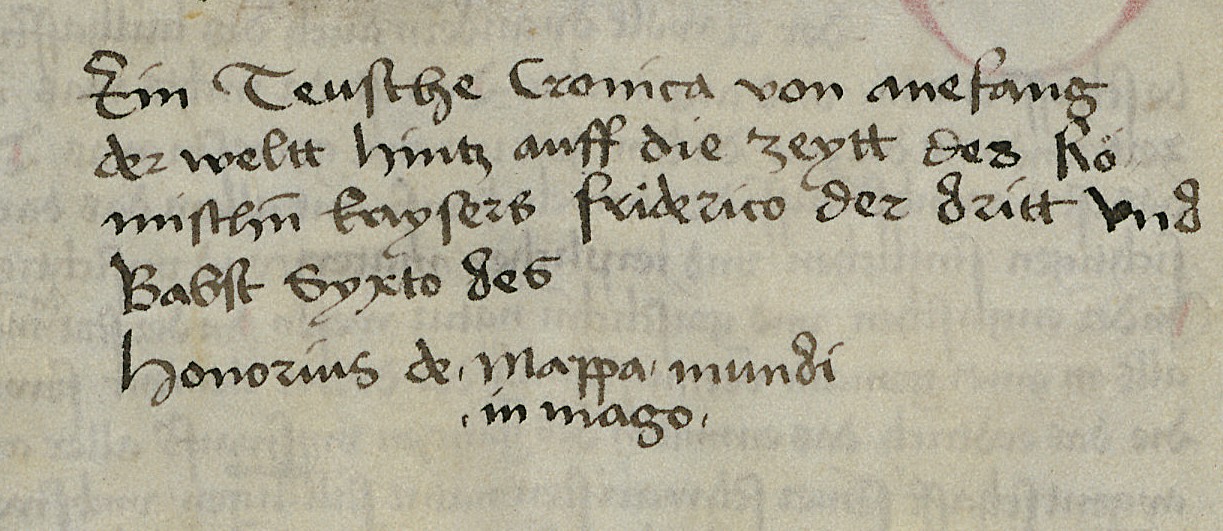 Ein Teusche Cronica von anefang
der weltt hintz auff die zeytt des Rö
mischn̄ kaysers friderico der dritt vnd
Babst Syxto des
Honorius de Mappa mundi
in mago